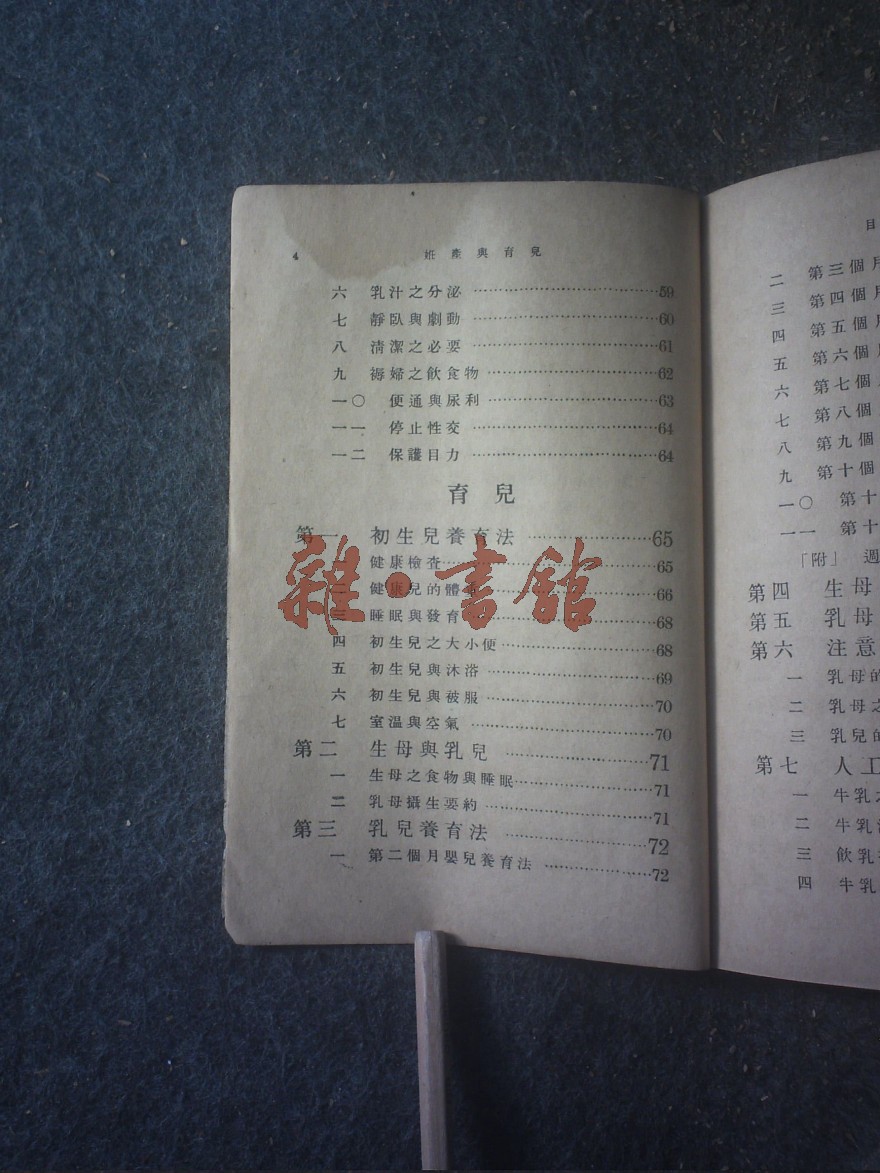 4 妊產與育兒
六 乳汁之分泌 59
七 靜臥與劇動 60
八 清潔之必要 61
九 褥婦之飲食物 62
一〇 便通與尿利 63
一一 停止性交 64
一二 保護目力 64
育兒
第一 初生兒養育法 65
健康檢查 65
健康兒的體 66
三 睡眠與發育 68
四 初生兒之大小便 68
五 初生兒與沐浴 69
六 初生兒與被服 70
七 室溫與空氣 70
第二 生母與乳兒 71
一 生母之食物與睡眠 71
二 乳母攝生要約 71
第三 乳兒養育法 72
一 第二個月嬰兒養育法 72
雜·書館
目
二 第三個月
三 第四個月
四 第五個月
五 第六個月
六 第七個月
七 第八個
八 第九個
九 第十個
一〇 第十
一一 第十
「附」 週
第四 生母
第五 乳母
第六 注意
一 乳母的
二 乳母之
三 乳兒的
第七 人工
一 牛乳之
二 牛乳
三 飲乳
四 牛乳